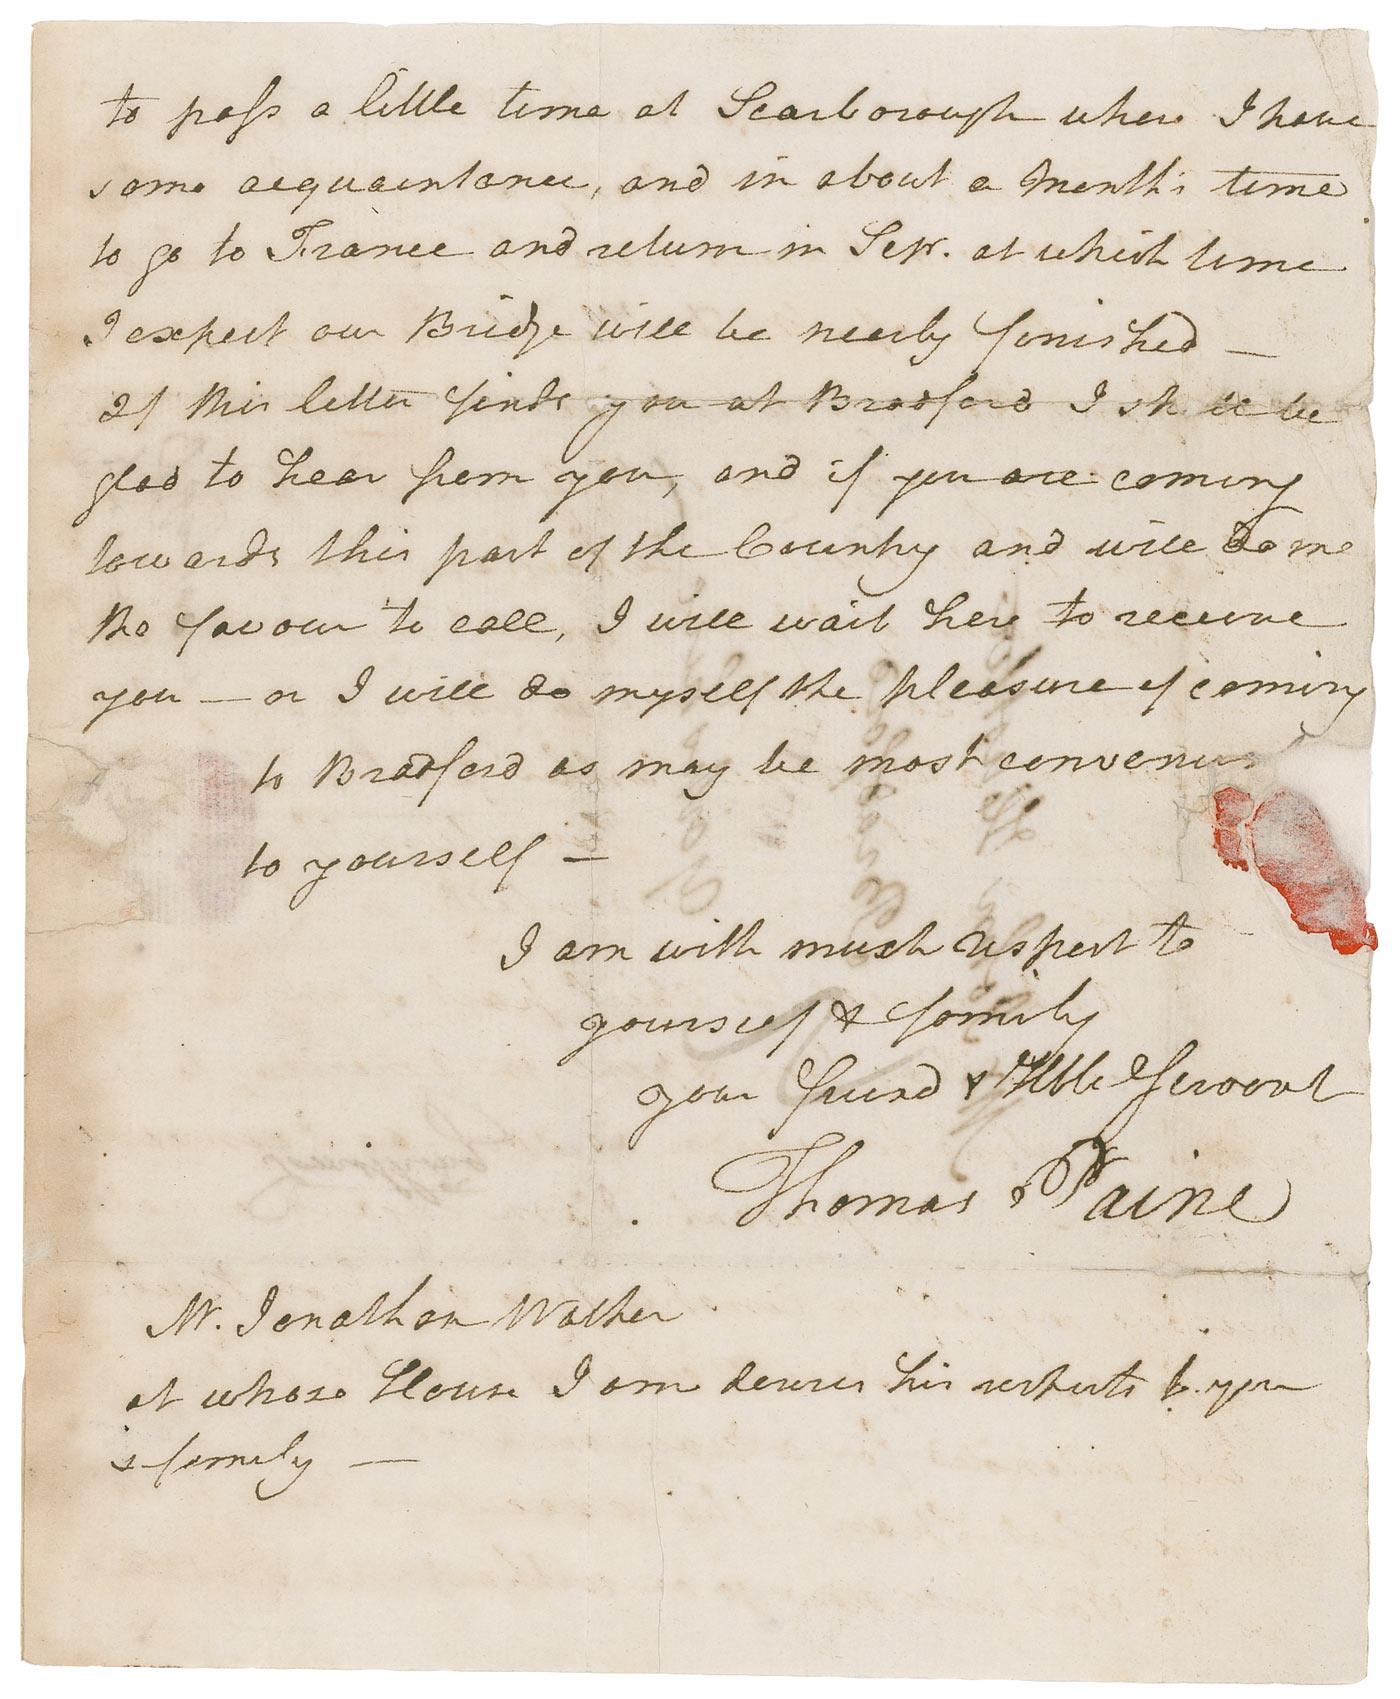 to pass a little time at Scarborough where I have
some acquaintance, and in about a Month's time
to go to France and return in Sepr. at which time
I expect our Bridge will be nearly finished —
If this letter finds you at Bradford I shall be
glad to hear from you, and if you are coming
towards this part of the Country and will do me
the favour to call, I will wait here to receive
you — or I will do myself the pleasure of coming
to Bradford as may be most convenien
to yourself —
I am with much respect to
yourself & family
your friend & Hble Servant
Thomas Paine
Mr. Jonathan Walker
at whose House I am desires his respects to you
& family —